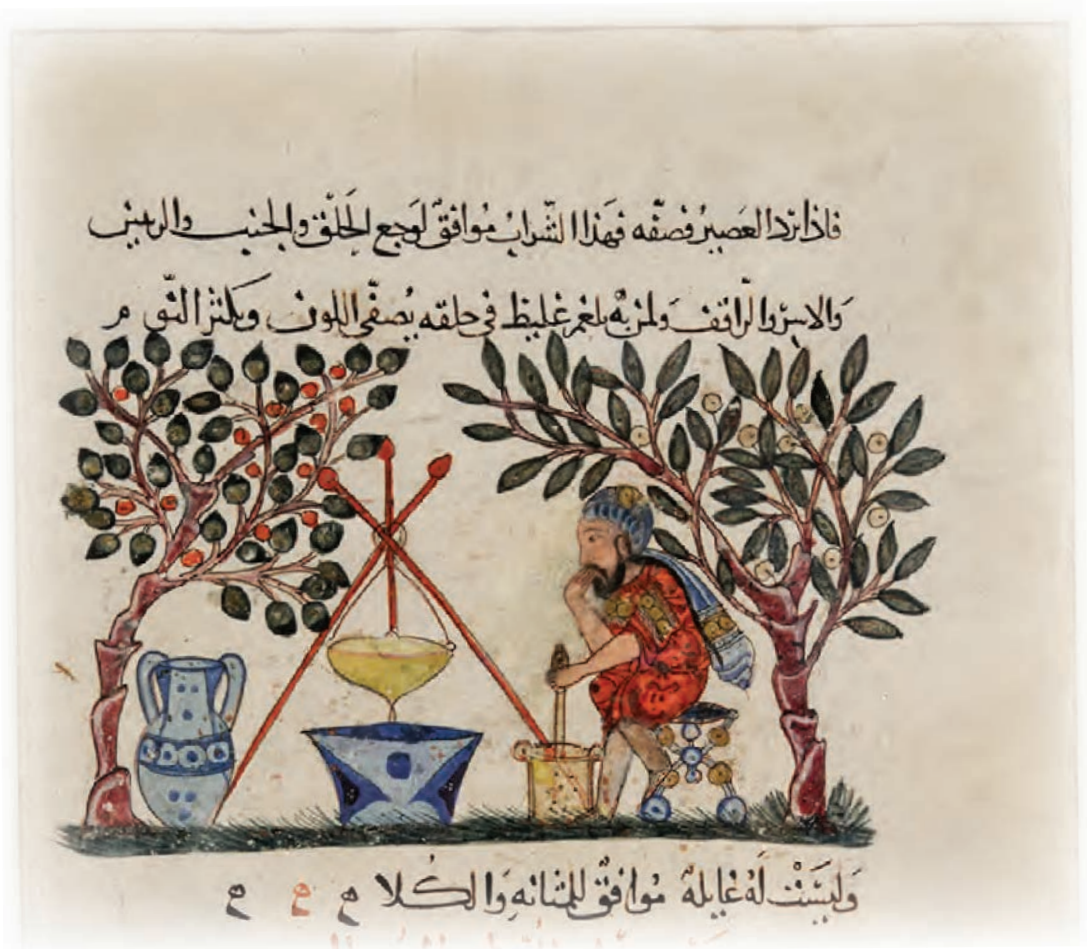 فاذا برد العصير فصفه فهذا الشراب موافق لوجع الحلق والجنب والرئين
والاسر والراقف ولمن به بلغم غليظ في حلقه يصفي اللون ويكثر النوم
وليست له غايلة موافق للمثانه والكلا م م م